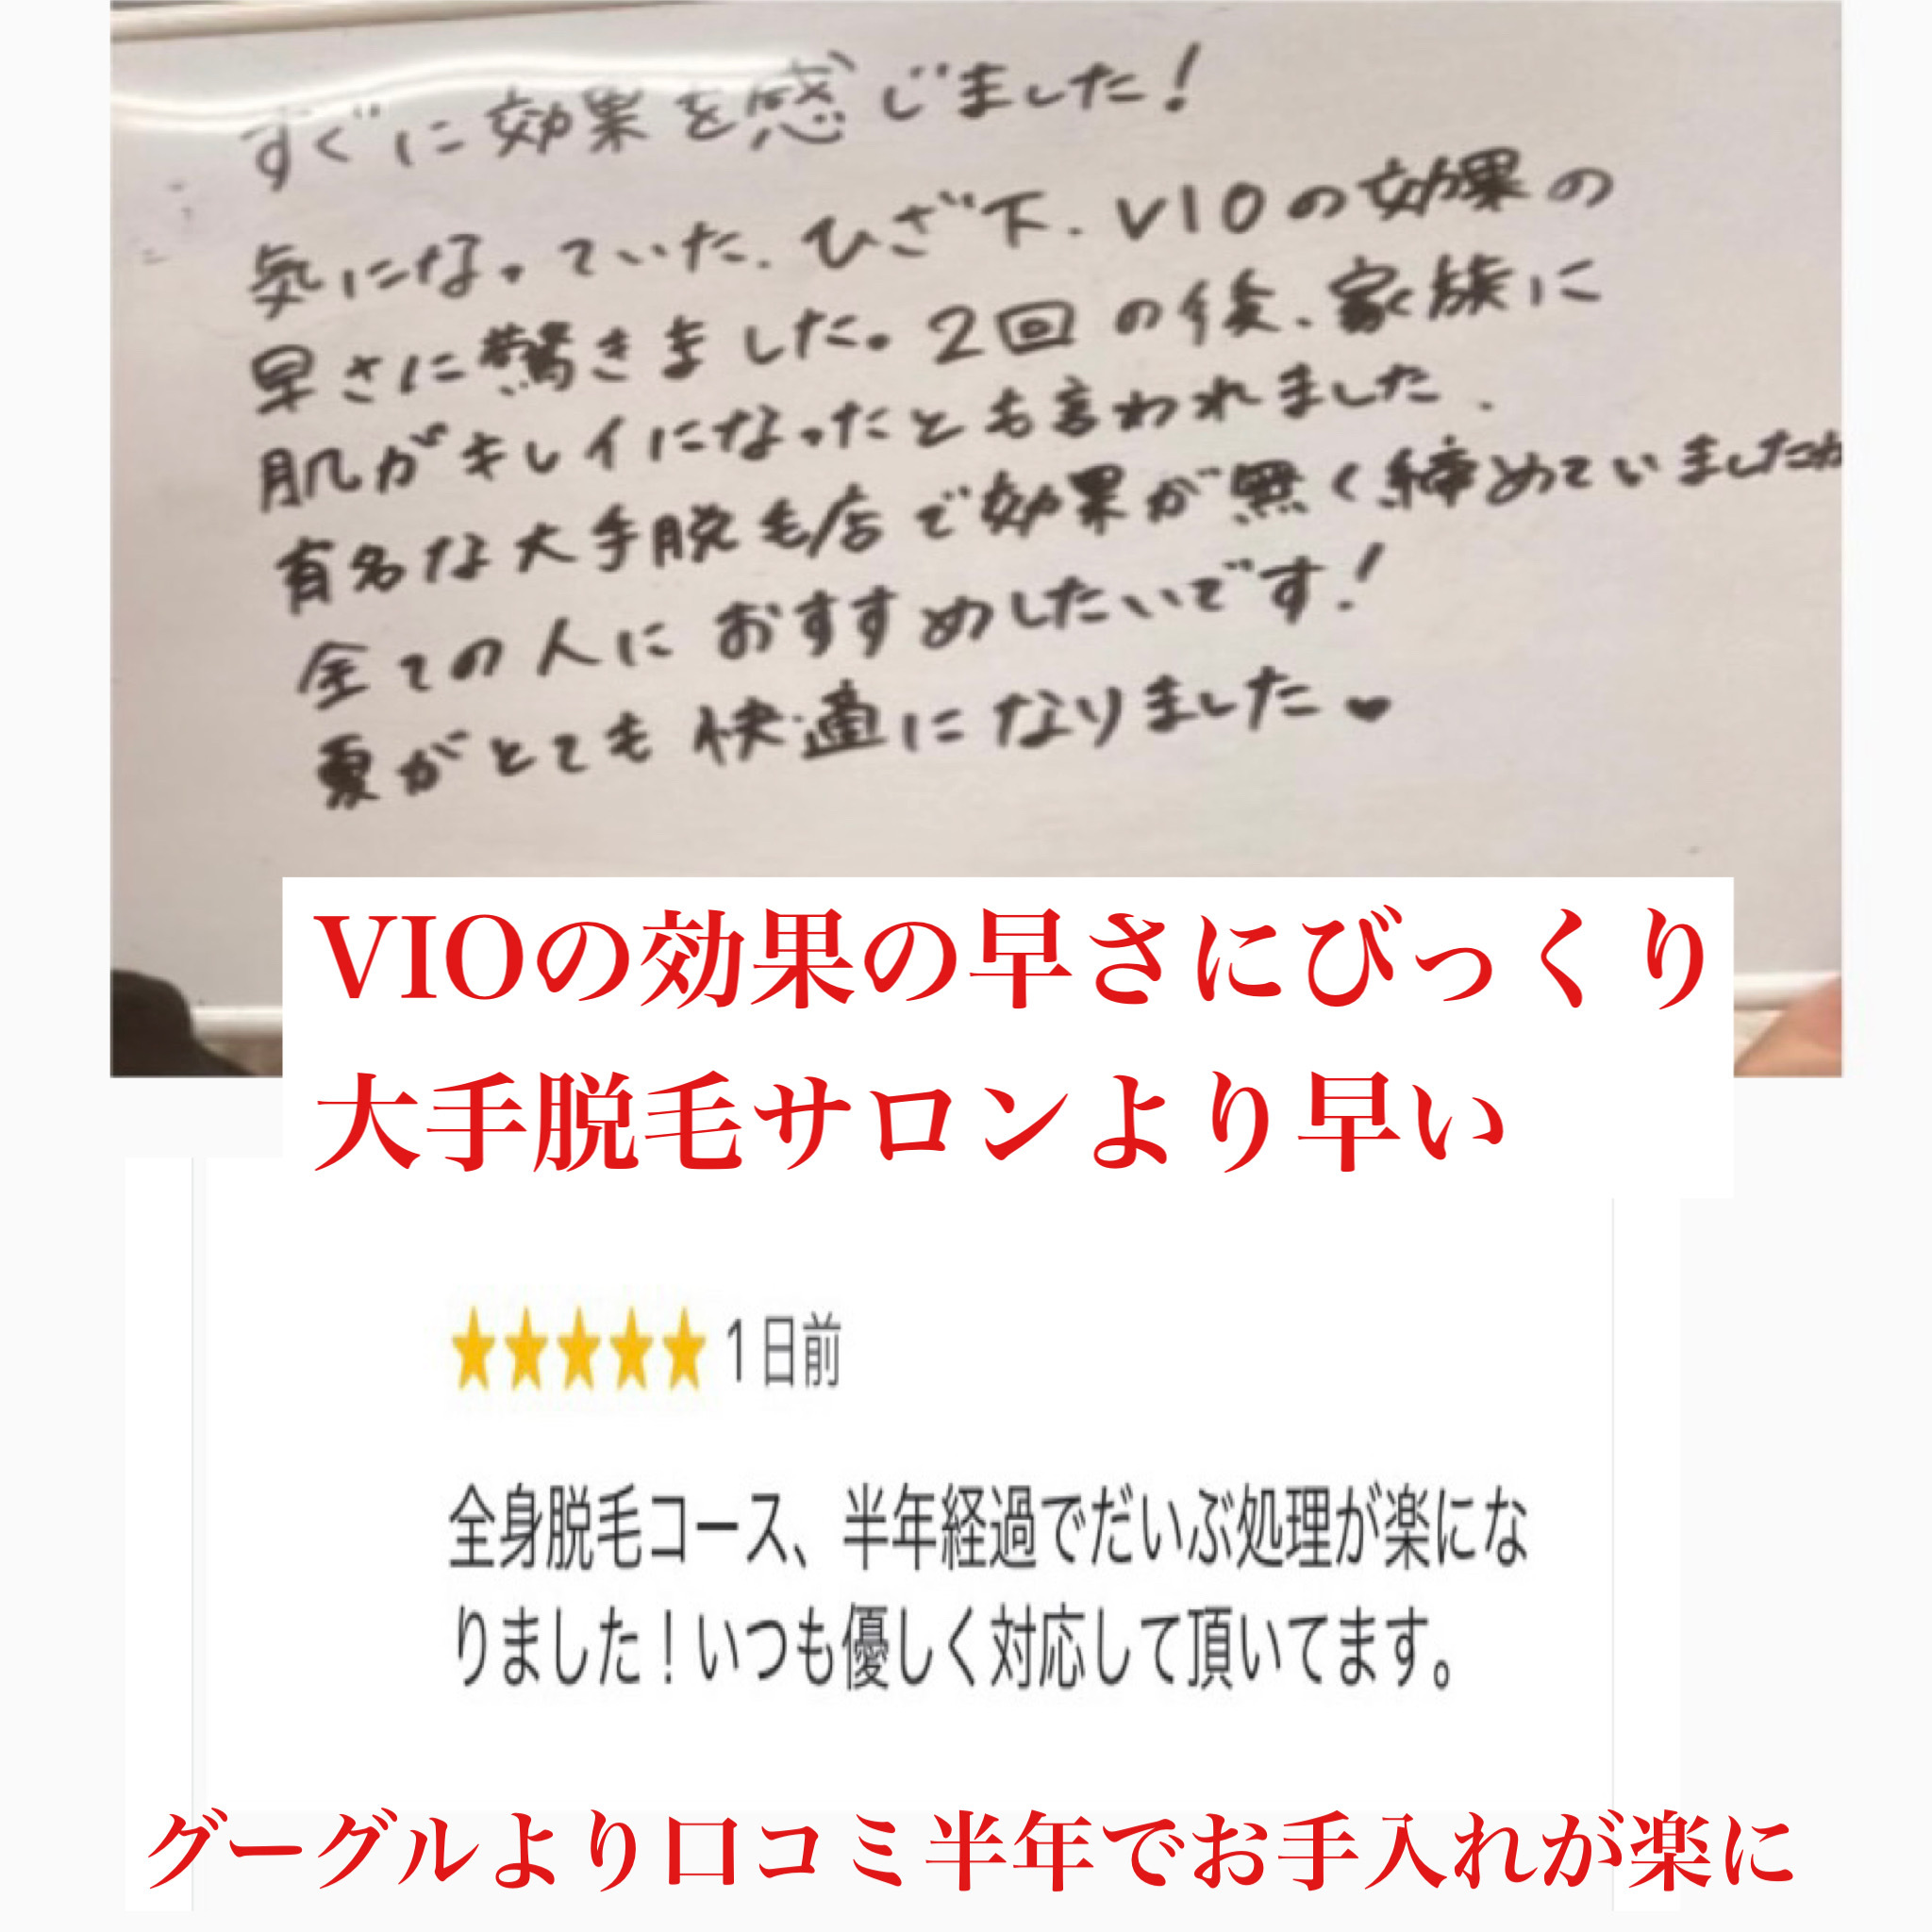 すぐに効果を感じました!
気になっていた、ひざ下、VIOの効果の
早さに驚きました。2回の後、家族に
肌がキレイになったとも言われました、
有名な大手脱毛店で効果が無く締めていましたが
全ての人におすすめしたいです!
夏がとても快適になりました♥
VIOの効果の早さにびっくり
大手脱毛サロンより早い
★★★★★ 1日前
全身脱毛コース、半年経過でだいぶ処理が楽にな
りました!いつも優しく対応して頂いてます。
グーグルより口コミ半年でお手入れが楽に